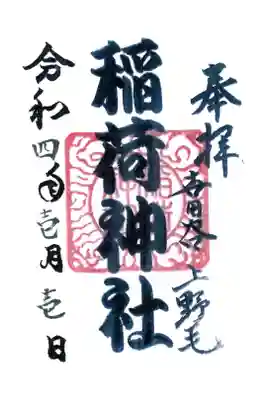 奉拝
上野毛
稲荷神社
令和四年壱月壱日